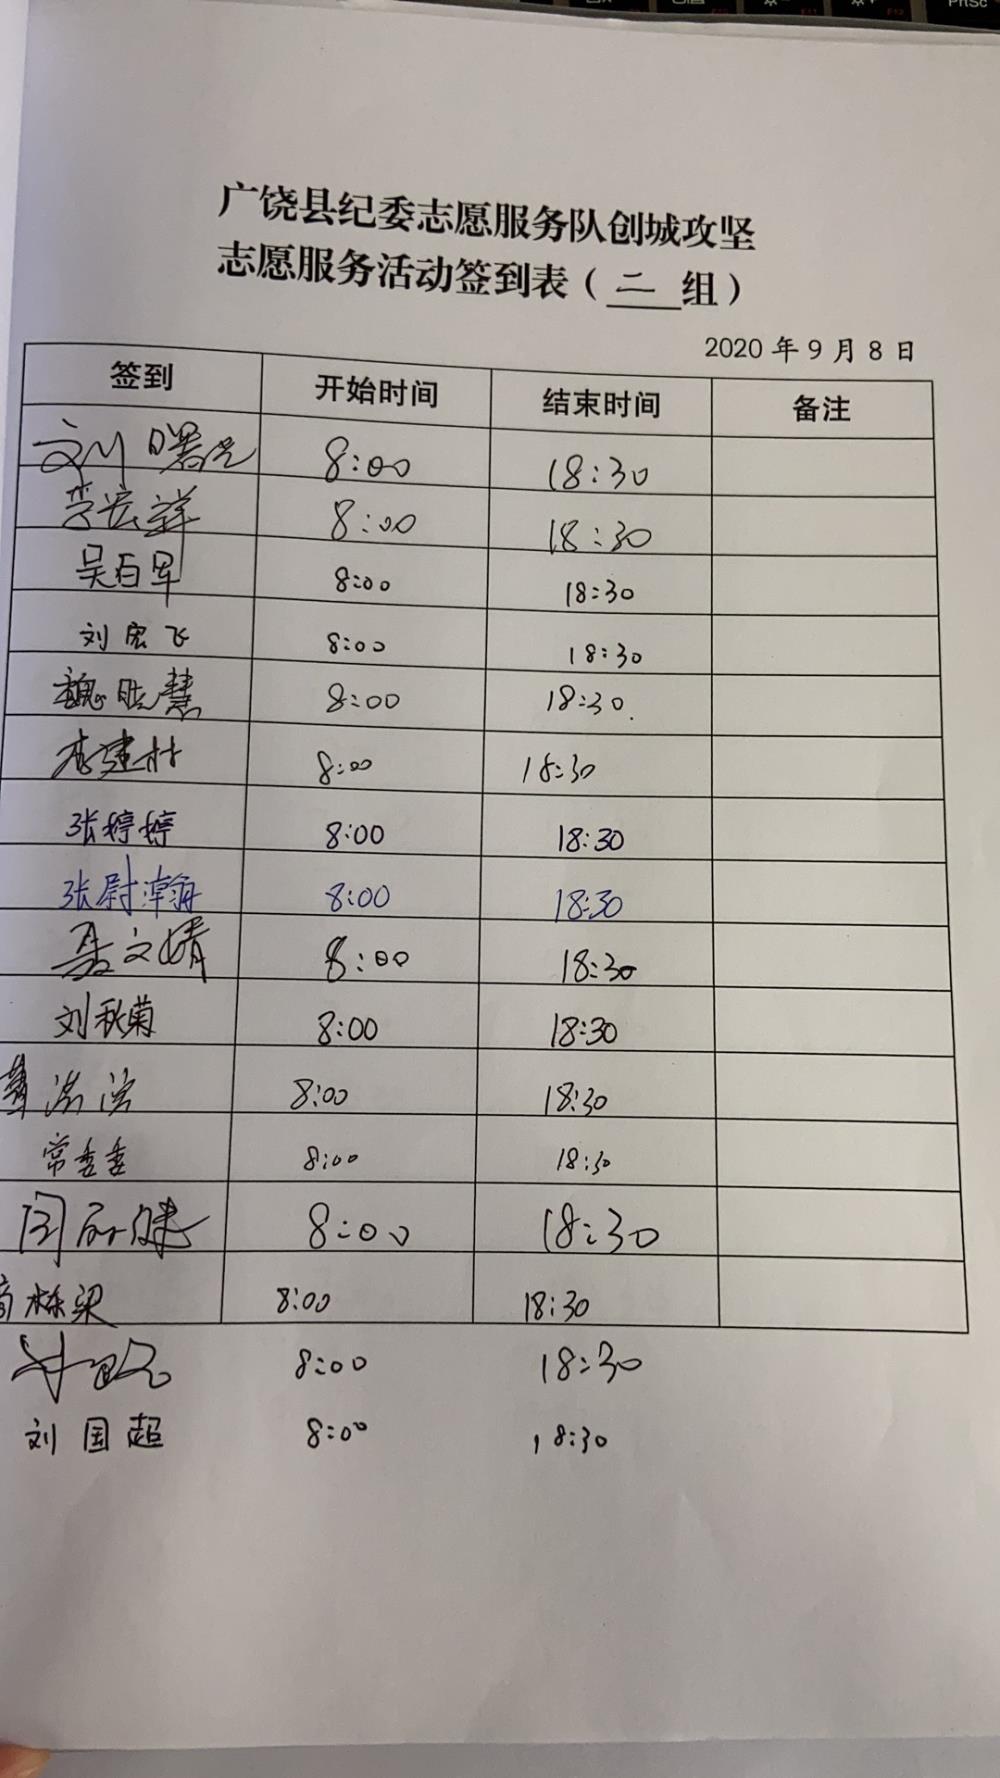 PrtSc
广饶县纪委志愿服务队创城攻坚
志愿服务活动签到表（二组）
2020年9月8日
签到 开始时间 结束时间 备注
刘曙光 8:00 18:30
李宏祥 8:00 18:30
吴百军 8:00 18:30
刘宏飞 8:00 18:30
魏晓慧 8:00 18:30.
李建村 8:00 18:30
张婷婷 8:00 18:30
张尉瀚 8:00 18:30
聂文婧 8:00 18:30
刘秋菊 8:00 18:30
8:00 18:30
常委委 8:00 18:30
8:00 18:30
栋梁 8:00 18:30
8:00 18:30
刘国超 8:00 18:30